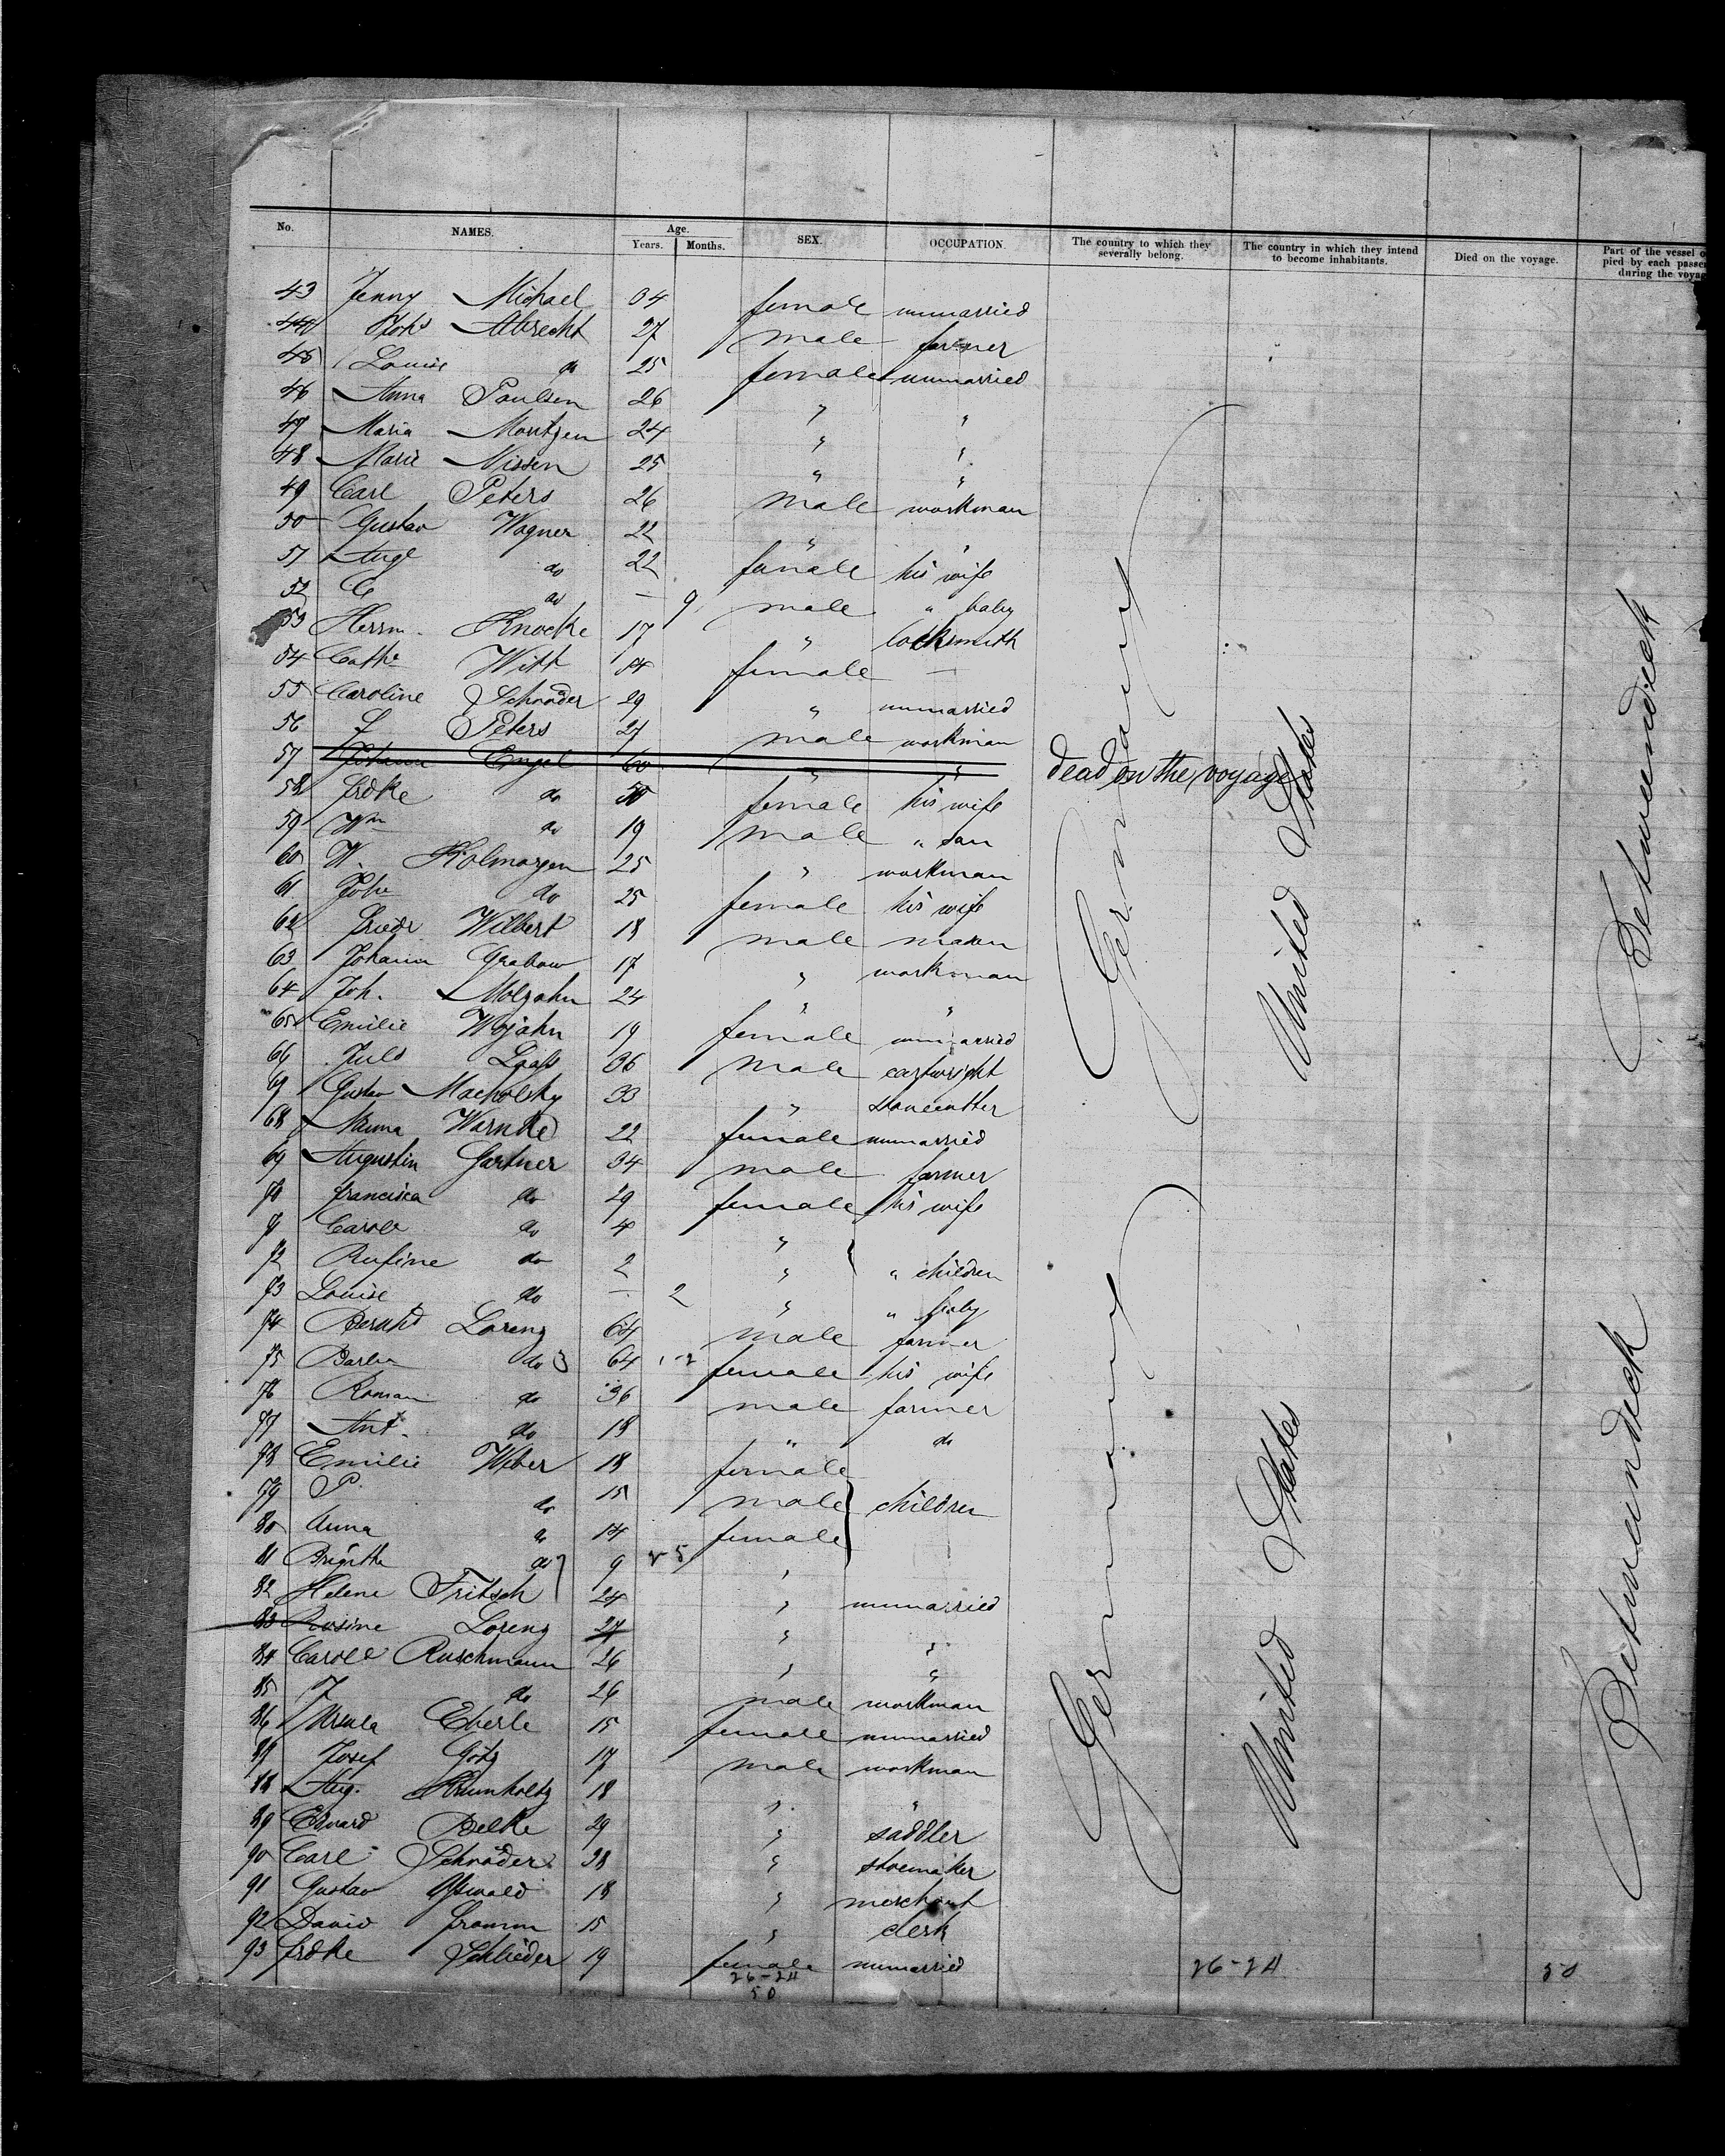 No. NAMES. Age. Years. Months. SEX. OCCUPATION. The country to which they severally belong. The country in which they intend to become inhabitants. Died on the voyage. Part of the vessel o pied by each passe during the voyag
43 Jenny Michael 34 female unmarried
44 Joh's Albrecht 27 male farmer
45 Louise do 25 female unmarried
46 Anna Paulsen 26 " "
47 Maria Moritzen 24 " "
48 Marie Nissen 25 " "
49 Carl Peters 26 male workman
50 Gustav Wagner 22 " "
51 Auge do 22 female his wife
52 C do — 9 male " baby
53 Herrm. Knocke 17 " locksmith
54 Cathe Witt 54 female —
55 Caroline Schröder 29 " unmarried
56 J Peters 27 male workman
57 Johann Engel 60 " " dead on the voyage
58 Frdke do 50 female his wife
59 Wm do 19 male " son
60 W. Kolmorgen 25 " workman
61 Johe do 25 female his wife
62 Friedr Wilbert 18 male mason
63 Johann Grabow 17 " workman
64 Joh. Molzahn 24 " "
65 Emilie Wojahn 19 female unmarried
66 Juls Laass 36 male cartwright
67 Gustav Macholsky 33 " stonecutter
68 Minna Warnke 22 female unmarried
69 Augustin Gartner 34 male farmer
70 Francisca do 29 female his wife
71 Carole do 4 "
72 Rufine do 2 " " children
73 Louise do — 2 " " baby
74 Bernhd Lorenz 64 male farmer
75 Barba do 64 female his wife
76 Roman do 36 male farmer
77 Ant. do 18 " do
78 Emilie Weber 18 female
79 P. do 15 male children
80 Anna do 14 female
81 Brigitha do 9 "
82 Helene Fritsch 24 " unmarried
83 Rosine Lorenz 27 " "
84 Carole Ruschmann 26 " "
85 J do 26 male workman
86 Ursula Eberle 15 female unmarried
87 Josef Götz 17 male workman
88 Aug. Krumholtz 18 " "
89 Eduard Belke 29 " saddler
90 Carl Schröder 38 " shoemaker
91 Gustav Osswald 18 " merchant
92 David Fromm 15 " clerk
93 Frdke Schlieder 19 female unmarried
26-24 26-24 50
50
Germany
United States
Betweendeck
Germany
United States
United States
Betweendeck